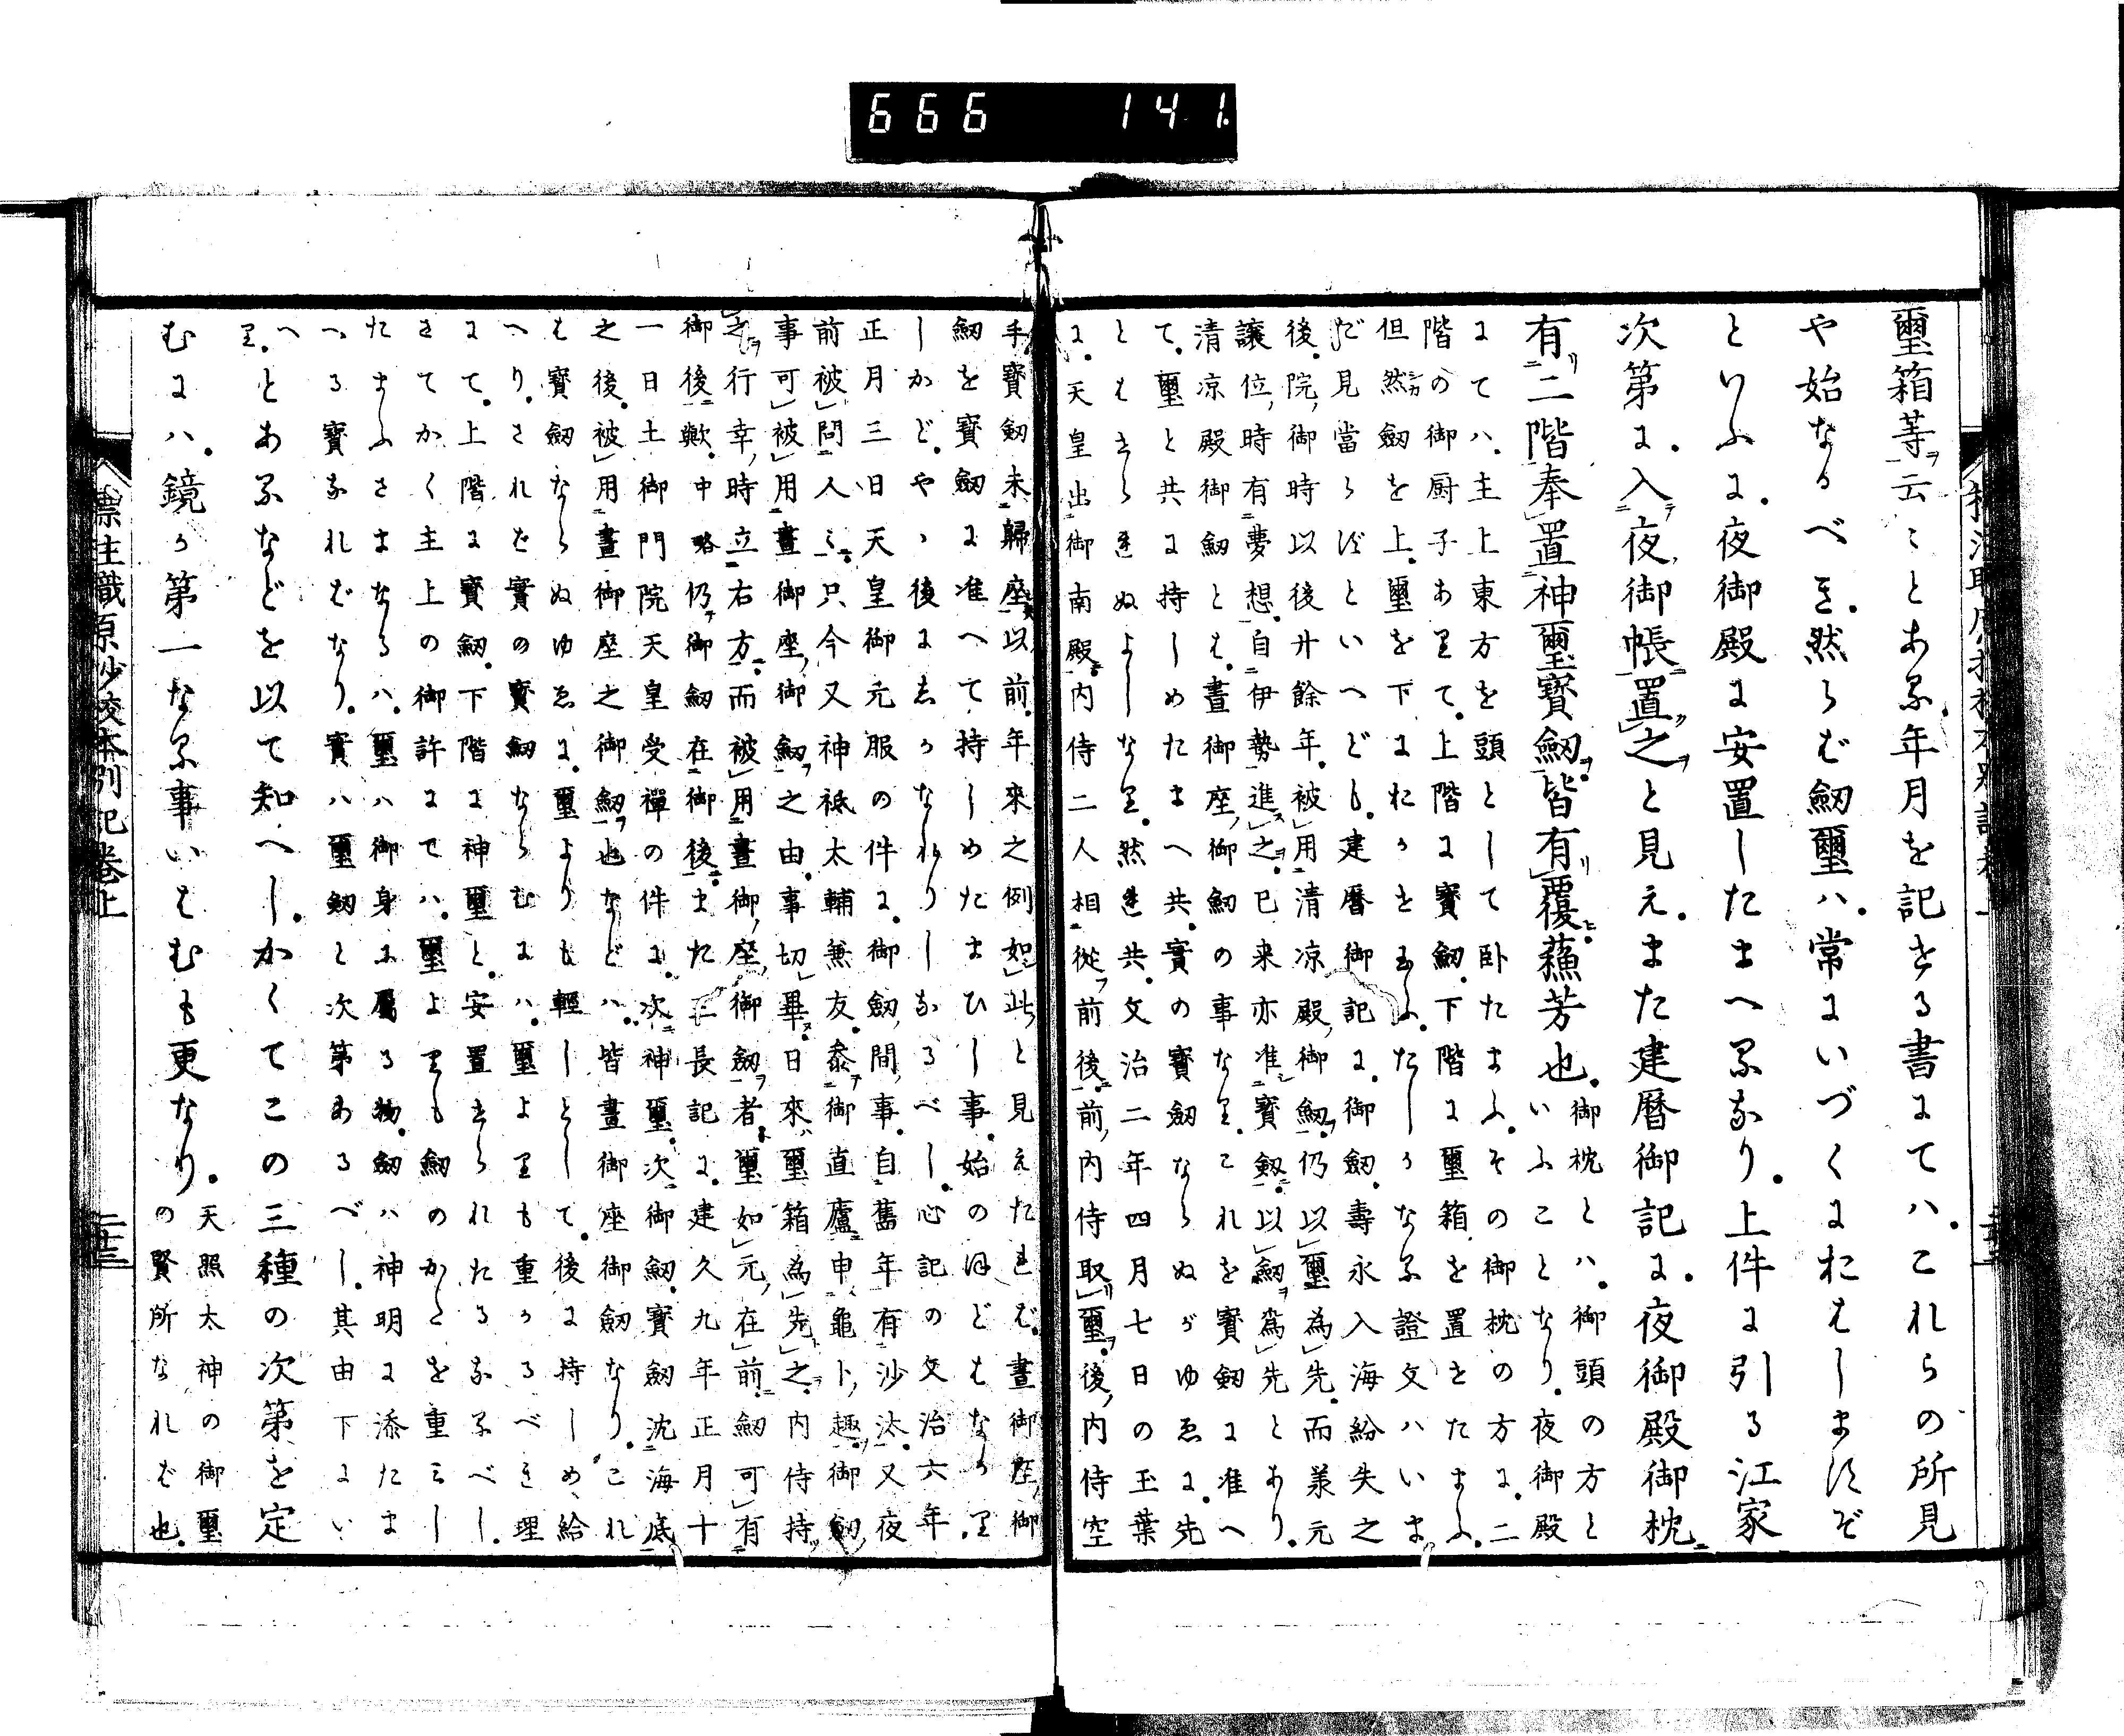 666 141.
璽箱等ヲ云〻とある。年月を記せる書にてハ。これらの所見
や始なるべき。然らば劔璽ハ。常にいづくにおはしますぞ
といふに。夜御殿に安置したまへるなり。上件に引る江家
次第に。入夜御帳置之と見え。また建暦御記に。夜御殿御枕
有二階奉置神璽寳劔皆有覆蘓芳也。
御枕とハ。御頭の方と
いふことなり。夜御殿
にてハ、主上東方を頭として卧たまふ。その御枕の方に。二
階の御厨子ありて。上階に寳劔。下階に璽箱を置せたまふ。
但然劔を上。璽を下におかせ玉ふ。たしかなる證文ハいま
だ見當らずといへども。建暦御記に。御劔。壽永入海紛失之
後。院御時以後廾餘年。被用清凉殿御劔仍以璽為先。而羕元
讓位時有夢想自伊勢進之已来亦准寳劔以劔為先とあり。
清凉殿御劔とは。晝御座御劔の事なり。これを寳劔に准へ
て。璽と共に持しめたまへ共。實の寳劔ならぬがゆゑに。先
とはせられぬよしなり。然れ共。文治二年四月七日の玉葉
に。天皇出御南殿内侍二人相從前後前内侍取璽後内侍空
手寳劔未歸座以前。年來之例如此と見えたれば。晝御座御
劔を寳劔に准へて持しめたまひし事。始のほどはなかり
しかど。やゝ後にしかなれりしなるべし。心記の文治六年
正月三日天皇御元服の件に。御劔間事。自舊年有沙汰。又夜
前被問人〻只今又神祇太輔兼友。参御直廬申龜卜趣御劔
事可被用晝御座御劔之由。事切畢日來璽箱為先之内侍持
之行幸時立右方而被用晝御座御劔者璽如元在前劔可有
御後歟。中略仍御劔在御後また三長記に。建久九年正月十
一日土御門院天皇受禪の件に。次神璽。次御劔寳劔沈海底
之後。被用晝御座之御劔也などハ。皆晝御座御劔なり。これ
は寳劔ならぬゆゑに。璽よりも輕しとして。後に持しめ給
へり。されど實の寳劔ならむにハ。璽よりも重かるべき理
にて。上階に寳劔。下階に神璽と。安置せられたるなるべし。
さてかく主上の御許にてハ。璽よりも劔のかたを重みし
たまふさまなるハ。璽ハ御身に屬る物。劔ハ神明に添たま
へる寳なればなり。實ハ璽劔と次第あるべし。其由下にい
へり。とあるなどを以て知へし。かくてこの三種の次第を定
むにハ。鏡か第一なる事いはむも更なり。
天照太神の御璽
の賢所なれば也。
標注職原抄校本別記卷上
二十三